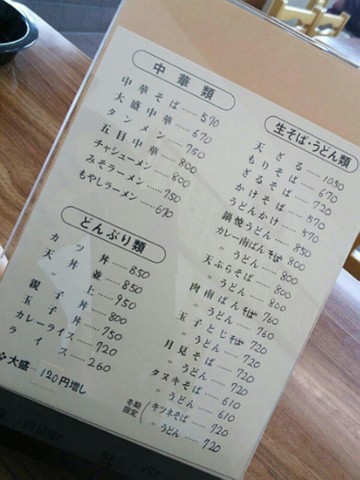 中華類
中華そば……570
大盛中華……670
タンメン……750
五目中華……800
チャシューメン……800
みそラーメン……750
もやしラーメン……670
どんぶり類
カツ丼……850
天丼 並……850
〃 上……950
親子丼……800
玉子丼……750
カレーライス……720
ライス……260
大盛……120円増し
生そば・うどん類
天ざる……1050
もりそば……670
ざるそば……720
かけそば……570
うどんかけ……570
鍋焼うどん……850
カレー南ばんそば 800
〃 うどん……800
天ぷらそば……800
〃 うどん……800
肉南ばんそば 760
〃 うどん……760
玉子とじそば 720
〃 うどん……720
月見そば……720
〃 うどん……720
タヌキそば……610
〃 うどん……610
冬期限定 キツネそば……720
〃 うどん……720